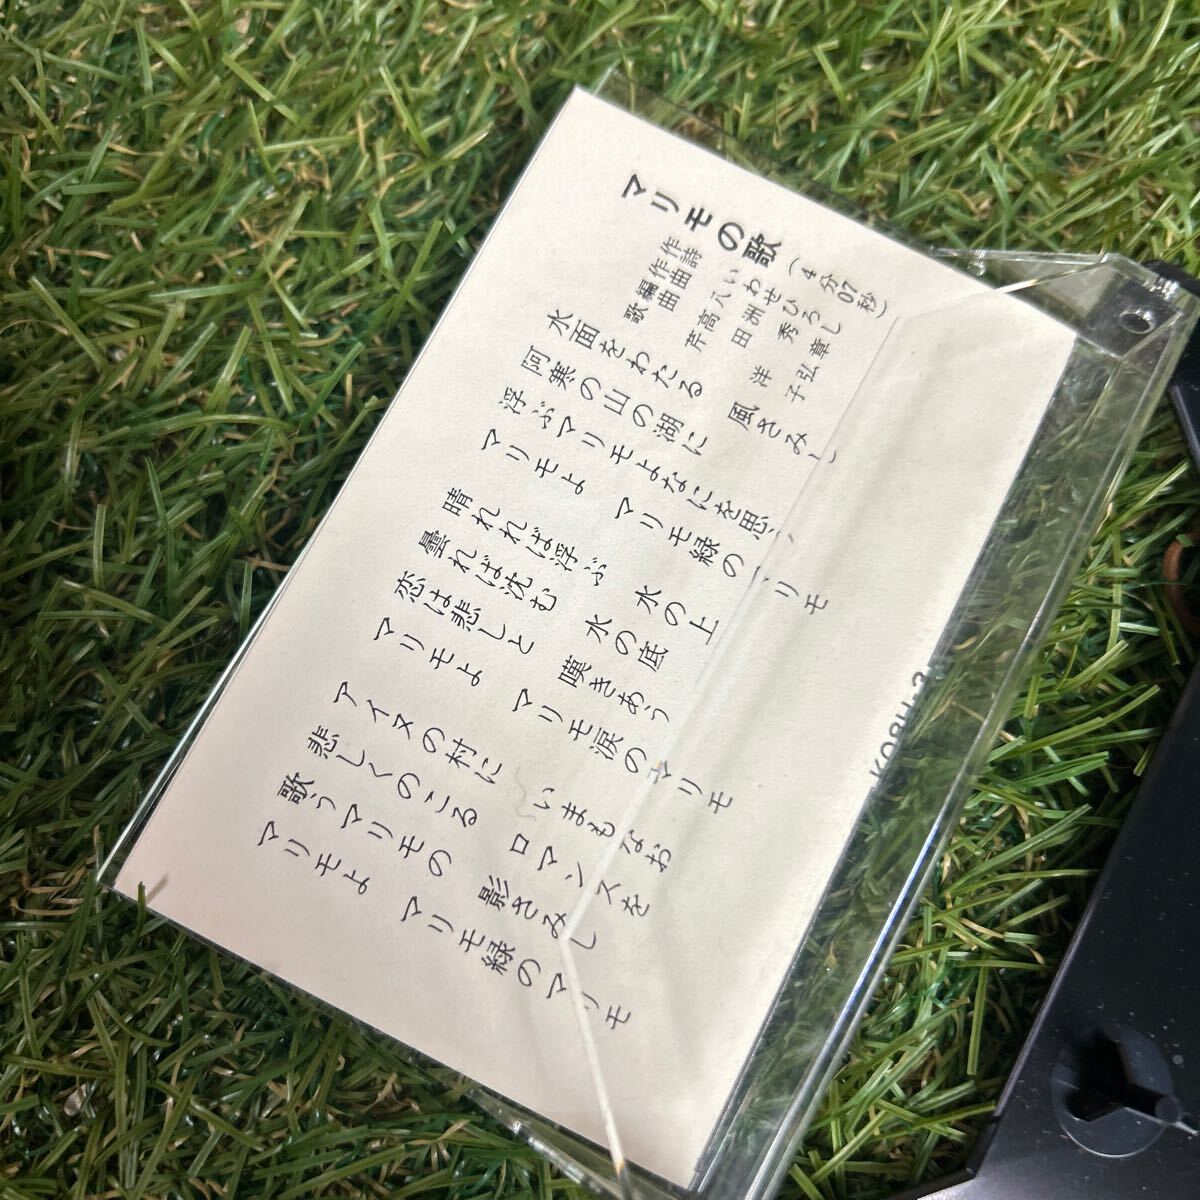 マリモの歌（4分07秒）
作詩 いわせひろし
作曲 八洲秀章
編曲 高田弘
歌 芹洋子
水面をわたる 風さみし
阿寒の山の湖に
浮ぶマリモよなにを思う
マリモよ マリモ緑のマリモ
晴れれば浮ぶ 水の上
曇れば沈む 水の底
恋は悲しと 嘆きあう
マリモよ マリモ涙のマリモ
アイヌの村に いまもなお
悲しくのこる ロマンスを
歌うマリモの 影さみし
マリモよ マリモ緑のマリモ